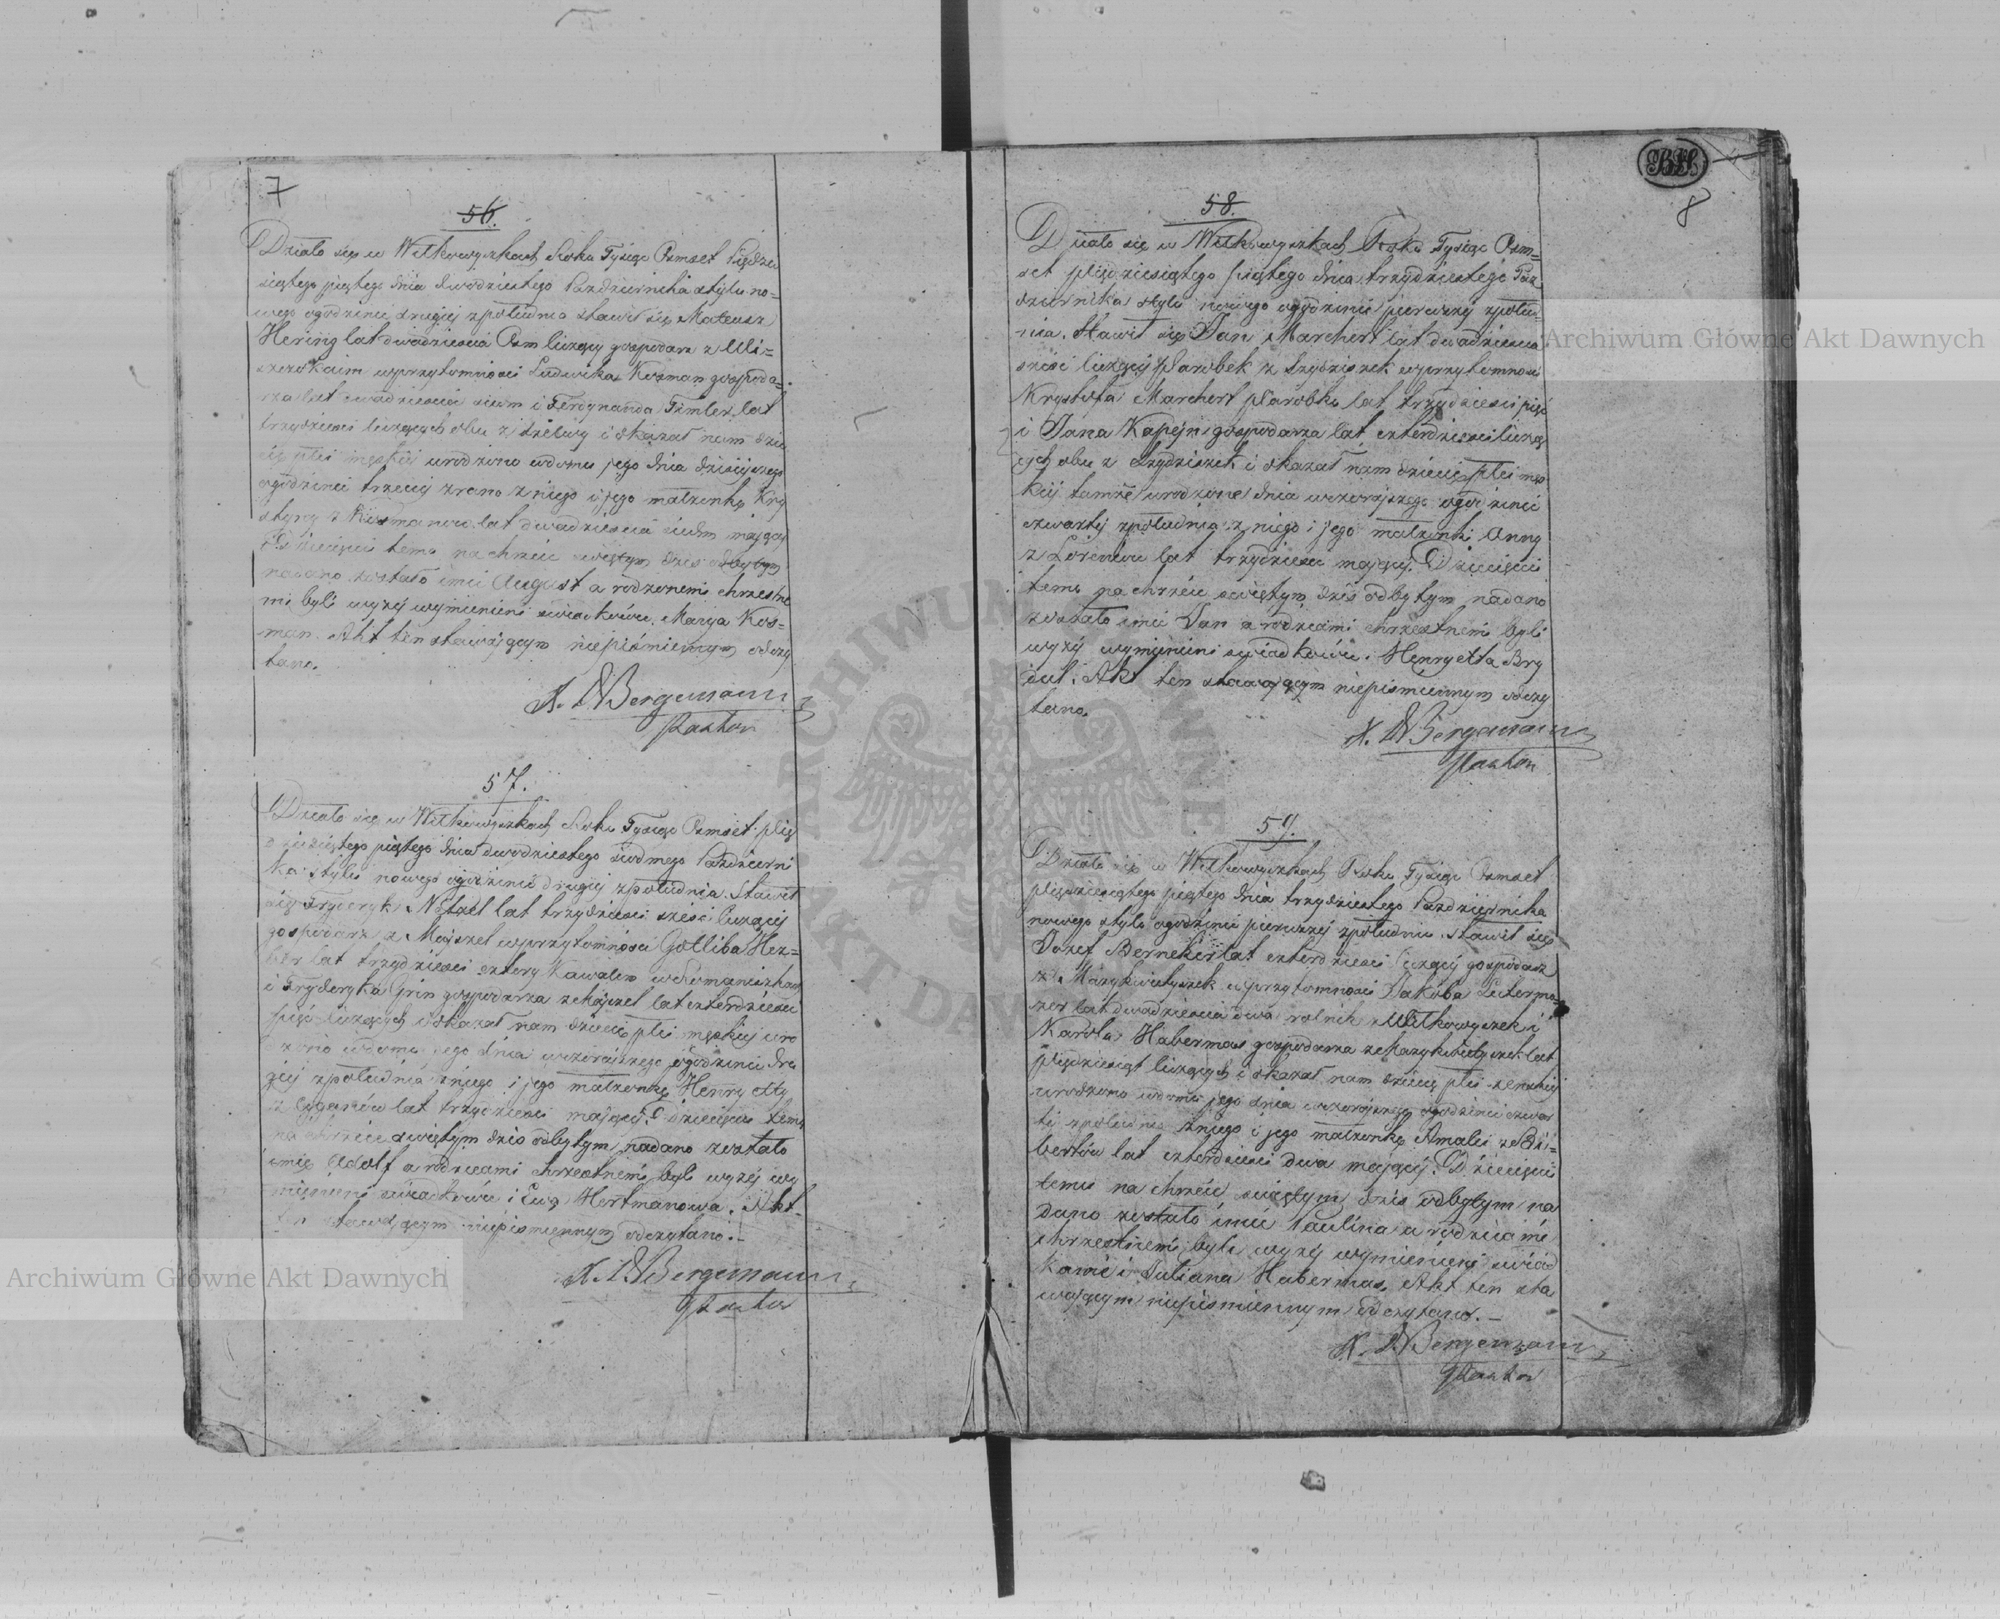 7
56.
Działo się w Wilkowyszkach Roku Tysiąc Osmset Pięćdzie
siątego piątego dnia dwódziestego Października stylu no=
wego ogodzinie drugiej zpołudnia stawił się Mateusz
Hering lat dwadziescia Osm liczący gospodarz z Wi=
wprzytomnosci Ludwika Kosman gospoda=
rza lat dwadziescia siedm i Ferdynanda lat
trzydziesci liczących obu z i okazał nam dzie
cię płci męskiej urodzone wdomu jego dnia dzisiejszego
ogodzinie trzeciej zrana z niego i jego małżonky Kry
styny z Kosmanow lat dwadziescia siedm mającej
Dziecięciu temu na chrzcie swiętym dzis odbytym
nadano zostało imie August a rodzonemi chrzestne
mi byli wyżej wymienieni swiadkowie, Maryja Kos=
man. Akt ten stawającym niepismiennym odczy
tano.
X. Bergemann
Pastor
57.
Działo się w Wilkowyszkach Roku Tysiąc Osmset pięć
dziesiątego piątego dnia dwodziestego siodmego Październi
ka stylu nowego ogodzinie drugiej zpołudnia. Stawił
się Fryderyk lat trzydziesci szesc liczącej
gospodarz z Majszel wprzytomnosci Gotliba Hez=
ber lat trzydziesci cztery Kawaler
i Fryderyka Grin gospodarza z Majszel lat czterdziesci
pięć liczących i okazał nam dziecie płci męskiej uro
dzono wdomu jego dnia wczorajszego ogodzinie dru
giej zpołudnia zniego i jego małżonky Henryetty
z lat trzydziesci mającej. Dziecięciu temu
na chrzcie swiętym dzis odbytym nadano zostało
imię Adolf a rodzicami chrzestnemi byli wyżej wy
mienieni swiadkowie i Ewa Hertmanowa. Akt
ten stawającym niepismiennym odczytano.–
X. Bergemann
Pastor
8
58.
Działo się w Wilkowyszkach Roku Tysiąc Osm=
set pięćdziesiątego piątego dnia trzydziestego Paź
dziernika stylu nowego ogodzinie pierwszej zpołud=
nia. Stawił się Jan Marchert lat dwadziescia
szesc liczący Parobek z Szydziszek wprzytomnosci
Krysztofa Marchert Parobka lat trzydziesci pięć
i Jana Kapejn gospodarza lat czterdziesci liczą
cych obu z Szydziszek i okazał nam dziecię płci męs
kiej tamże urodzone dnia wczorajszego ogodzinie
czwartej zpołudnia z niego i jego małżonki Anny
z Lorencow lat trzydziesci mającej. Dziecięciu
temu na chrzcie swiętym dzis odbytym nadano
zostało imie Jan a rodzicami chrzestnemi byli
wyżej wymienieni swiadkowie. Henryetta Bry
dul. Akt ten stawającym niepismiennym odczy
tano.
X. Bergemann
Pastor
59.
Działo się w Wilkowyszkach Roku Tysiąc Osmset
pięćdziesiątego piątego dnia trzydziestego Października
nowego stylu ogodzinie pierwszej zpołudnia. stawił się
Jozef Berneker lat czterdziesci liczący gospodarz
z Mazykwietyszek wprzytomnosci Jakoba Luterma=
zer lat dwadziescia dwa rolnik z Wilkowyszek i
Karola Habermas gospodarza z Mazykwietyszek lat
pięćdziesiąt liczących i okazał nam dziecię płci zenskiej
urodzono wdomu jego dnia wczorajszego ogodzinie czwar
tej zpołudnia zniego i jego małżonkę Amalii z
bertow lat czterdziesci dwa mającej. Dziecięciu
temu na chrzcie swiętym dzis odbytym na
dano zostało imie Paulina a rodzicami
chrzestnemi byli wyżej wymienieni swiad
kowie i Juliana Habermas. Akt ten sta
wającym niepismiennym odczytano.–
X. Bergemann
Pastor
Archiwum Główne Akt Dawnych
Archiwum Główne Akt Dawnych
ARCHIWUM GŁÓWNE AKT DAWNYCH